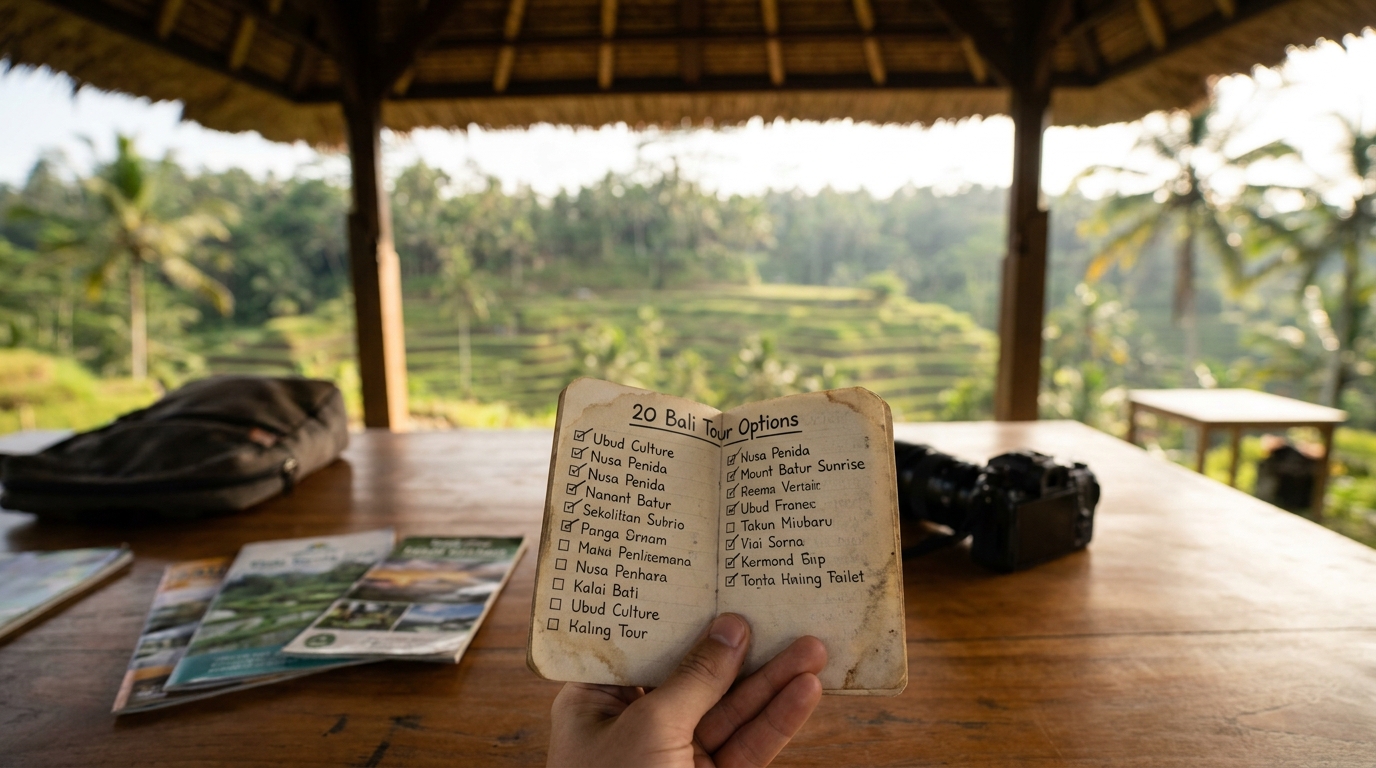 20 Bali Tour Options
Ubud Culture
Nusa Penida
Nusa Penida
Nanant Batur
Sekolitan Subrio
Panga Srnam
Maka Penlisemana
Nusa Penhara
Kalai Bati
Ubud Culture
Kaling Tour
Nusa Penida
Mount Batur Sunrise
Reema Vertair
Ubud Franec
Takun Miubaru
Viai Sorna
Kermond Bip
Tonta Hining Failet